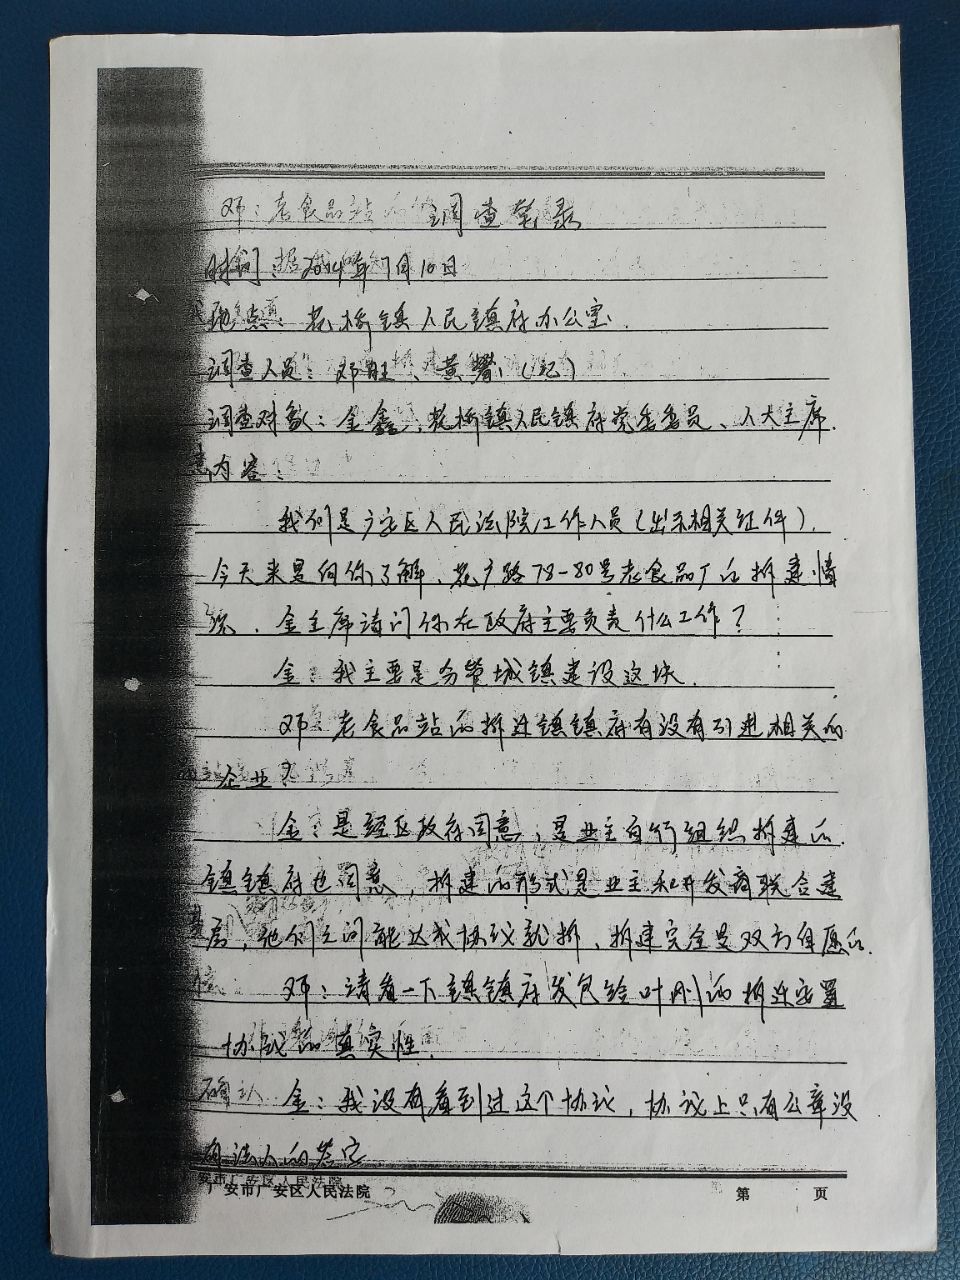 邓：老食品站的 调查笔录
时间：2014年7月10日
地点：花桥镇人民镇府办公室.
调查人员：邓旺、黄攀（记）
调查对象：金鑫，花桥镇人民镇府党委委员、人大主席.
内容：
我们是广安区人民法院工作人员（出示相关证件），
今天来是向你了解、花广路78-80号老食品厂的拆建情
况、金主席请问你在政府主要负责什么工作？
金：我主要是分管城镇建设这块.
邓：老食品站的拆迁镇镇府有没有引进相关的
企业？
金：是经区政府同意，是业主自行组织拆建的.
镇镇府也同意，拆建的形式是业主和开发商联合建
房，他们之间能达成协议就拆、拆建完全是双方自愿的.
邓：请看一下镇镇府发包给叶刚的拆迁安置
协议的真实性.
确认 金：我没有看到过这个协议，协议上只有公章没
有法人的签字
安市广安区人民法院
广安市广安区人民法院 第 页